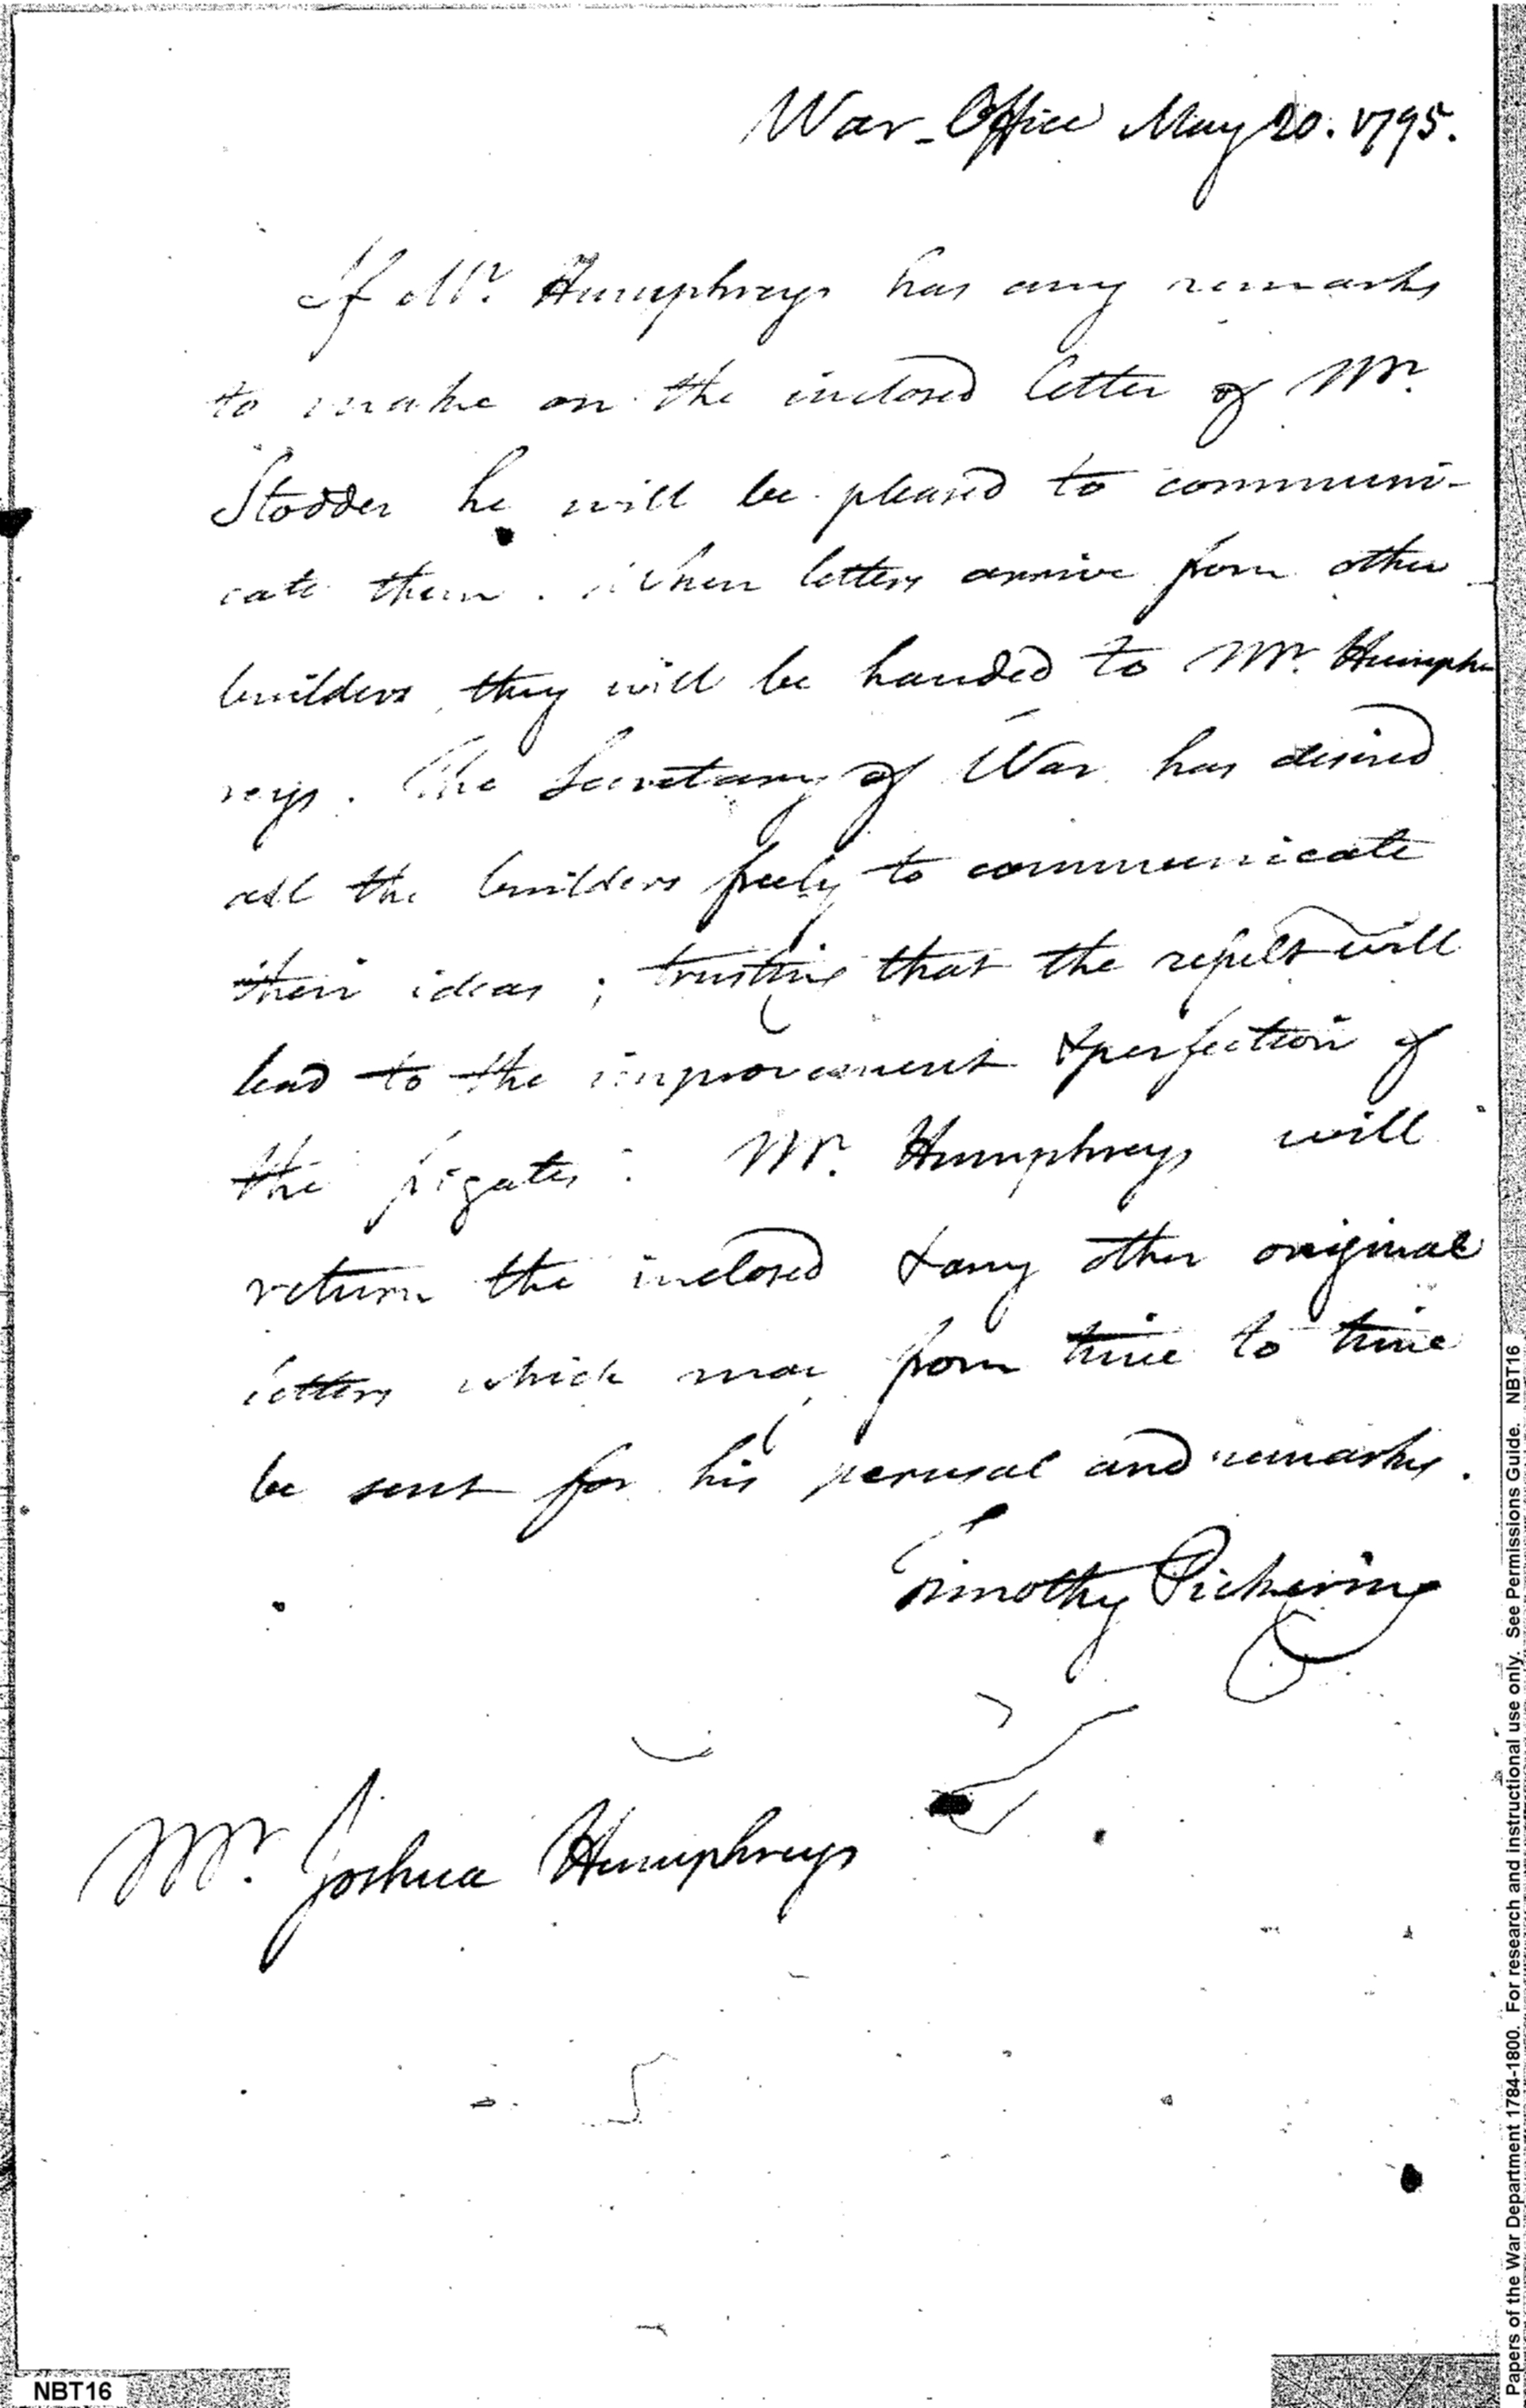 War-Office May 20. 1795.
If Mr. Humphreys has any remarks
to make on the inclosed letter of Mr.
Stodder he will be pleased to communi-
cate them. When letters arrive from other
builders, they will be handed to Mr. Humph
reys. The Secretary of War has desired
all the builders freely to communicate
their ideas; trusting that the result will
lead to the improvement & perfection of
the frigates. Mr. Humphreys will
return the inclosed & any other original
letters which may from time to time
be sent for his perusal and remarks.
Timothy Pickering
Mr. Joshua Humphreys
NBT16
Papers of the War Department 1784-1800. For research and instructional use only. See Permissions Guide. NBT16